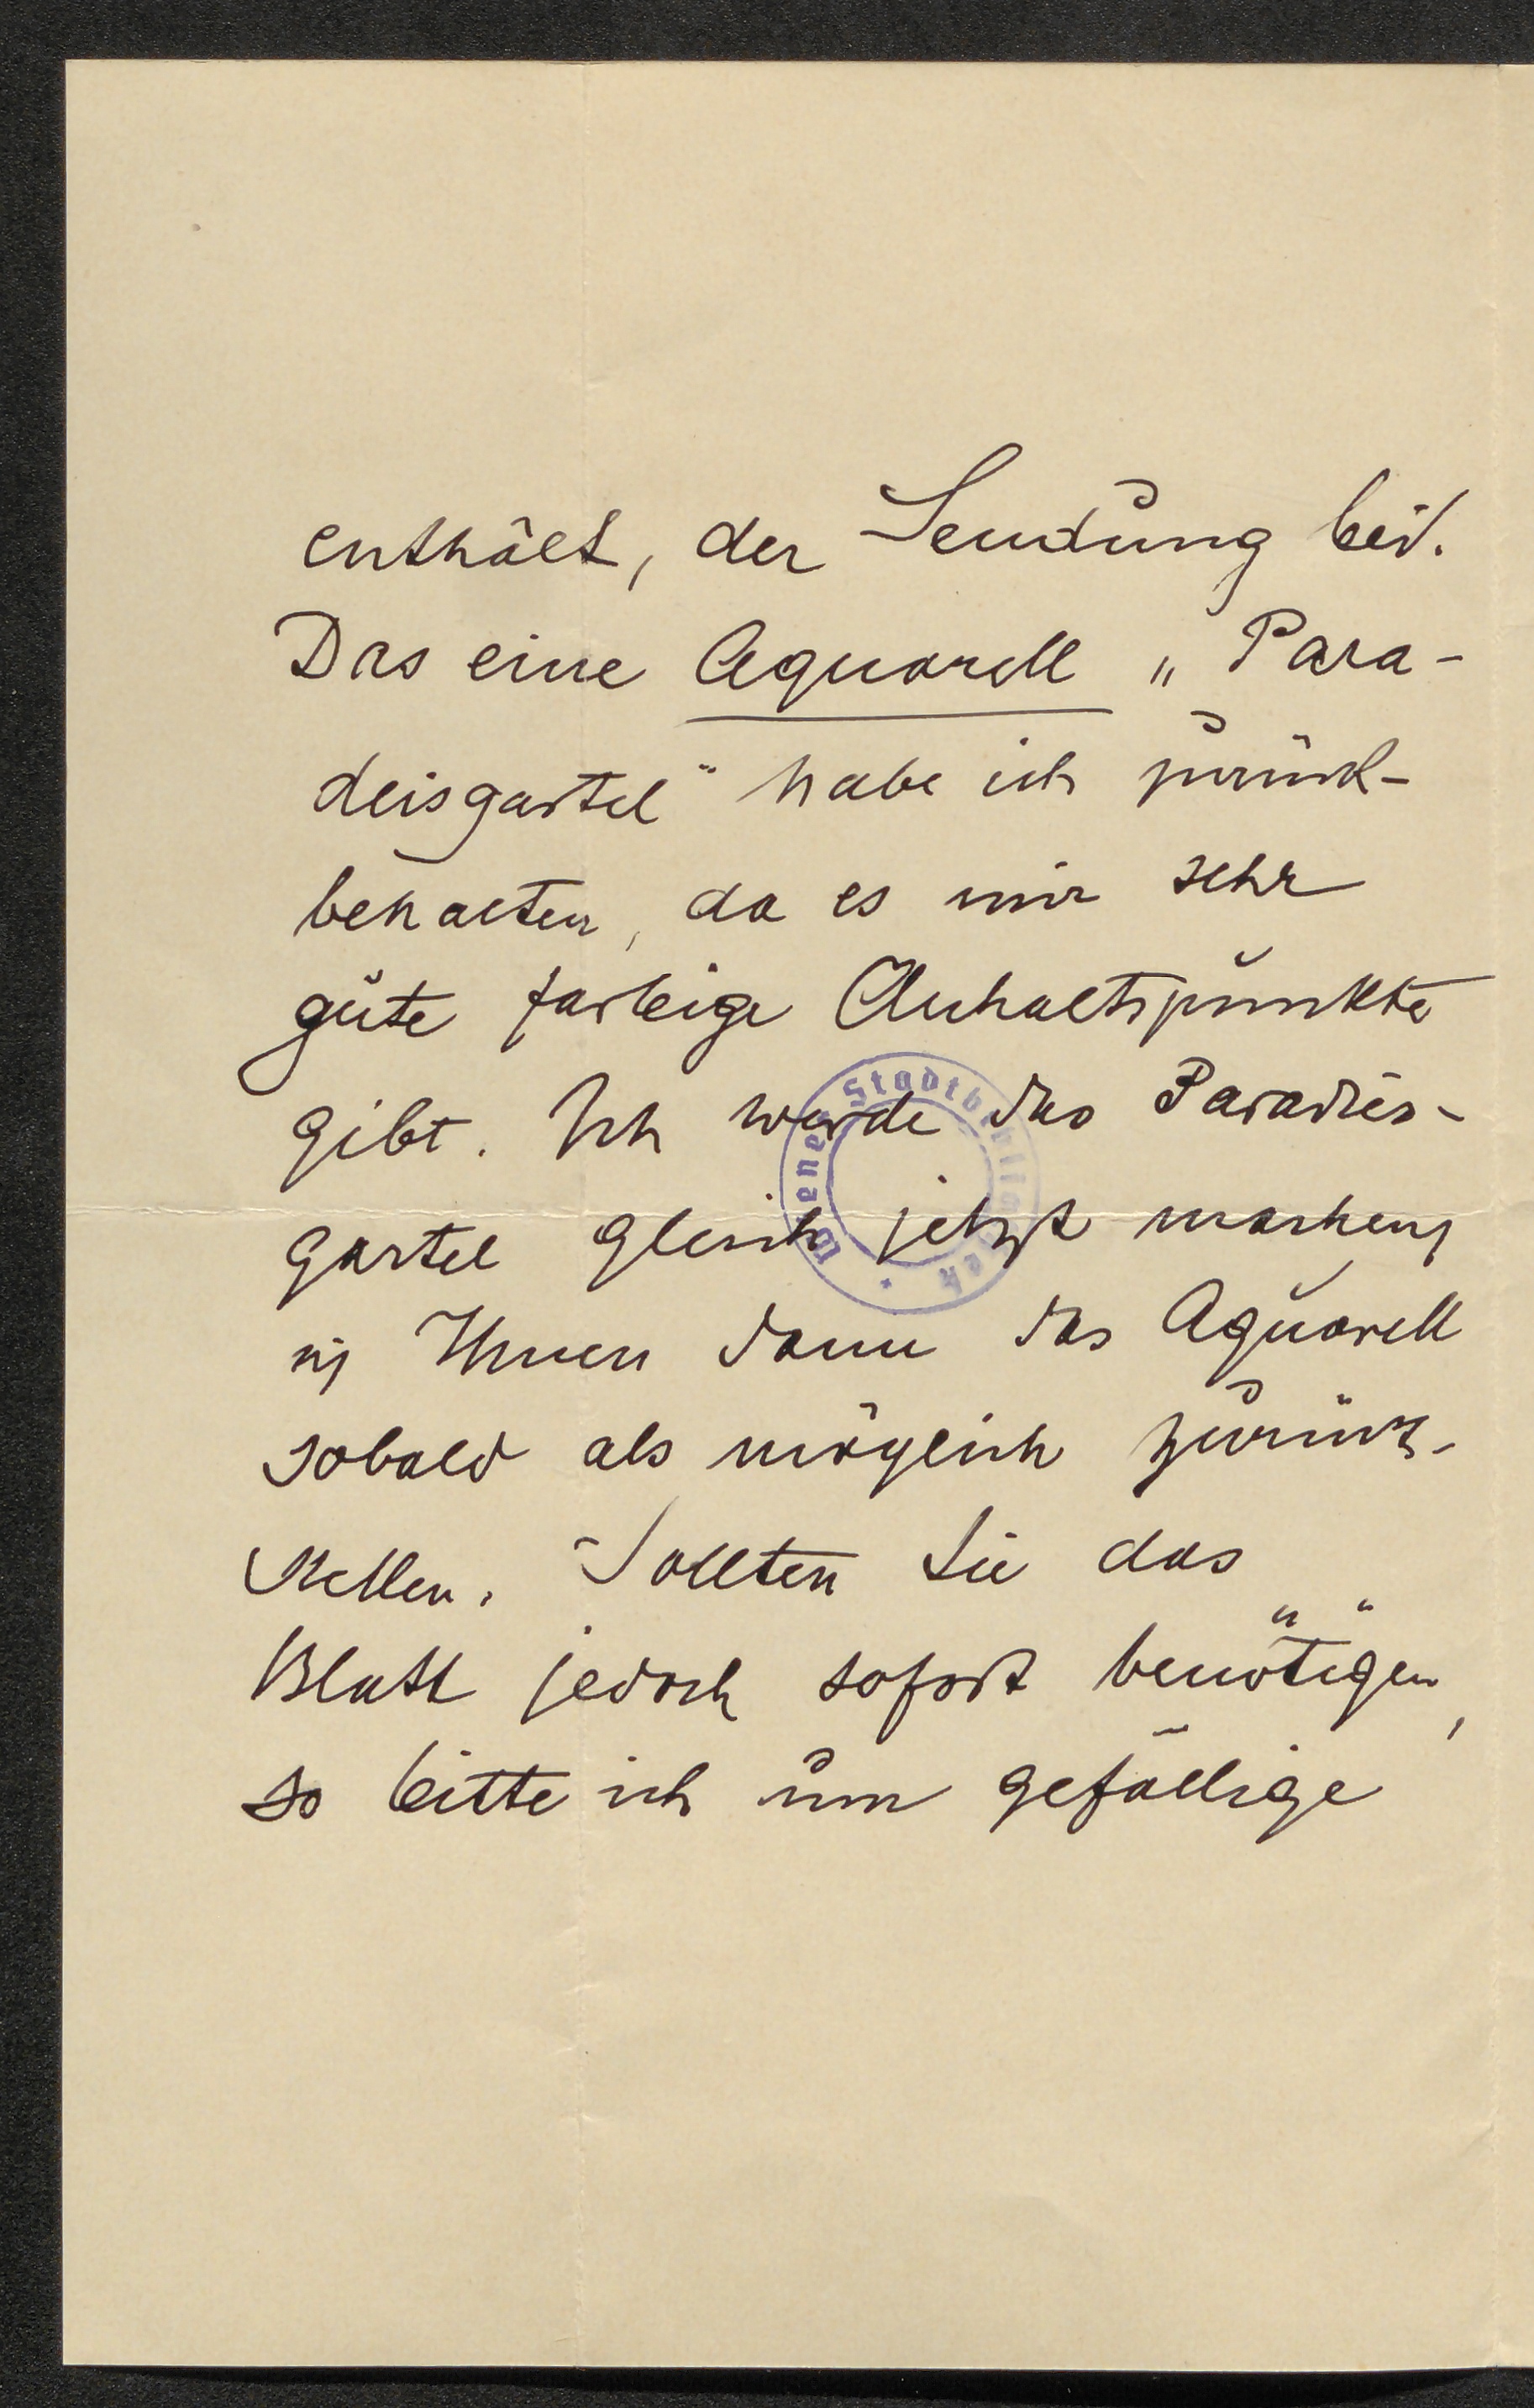 enthält, der Sendung bei.
Das eine Aquarell „Para-
deisgartel“ habe ich zurück-
behalten, da es mir sehr
gute farbige Anhaltspunkte
gibt. Ich werde das Paradies-
gartel gleich jetzt machen
u Ihnen dann das Aquarell
sobald als möglich zurück-
stellen. Sollten Sie das
Blatt jedoch sofort benötigen,
so bitte ich um gefällige
Wiener Stadtbibliothek